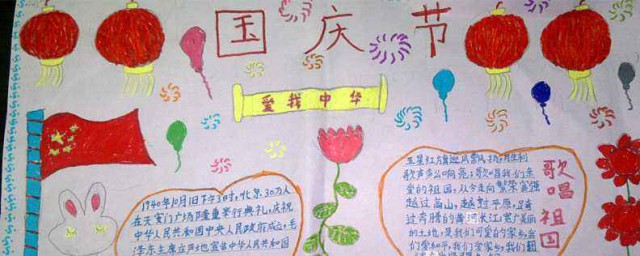 国庆节
爱我中华
1940年10月1日下午3时,北京30万人
在天安门广场隆重举行典礼,庆祝
中华人民共和国中央人民政府成立,毛
泽东主席庄严地宣告中华人民共和国
五星红旗迎风飘扬,胜利
歌声多么响亮;歌唱我们亲
爱的祖国,从今走向繁荣富强
越过高山,越过平原,
过奔腾的黄河长江;宽广美丽
的土地,是我们可爱的家乡,我
们爱和平,我们爱家乡,我们
歌唱祖国